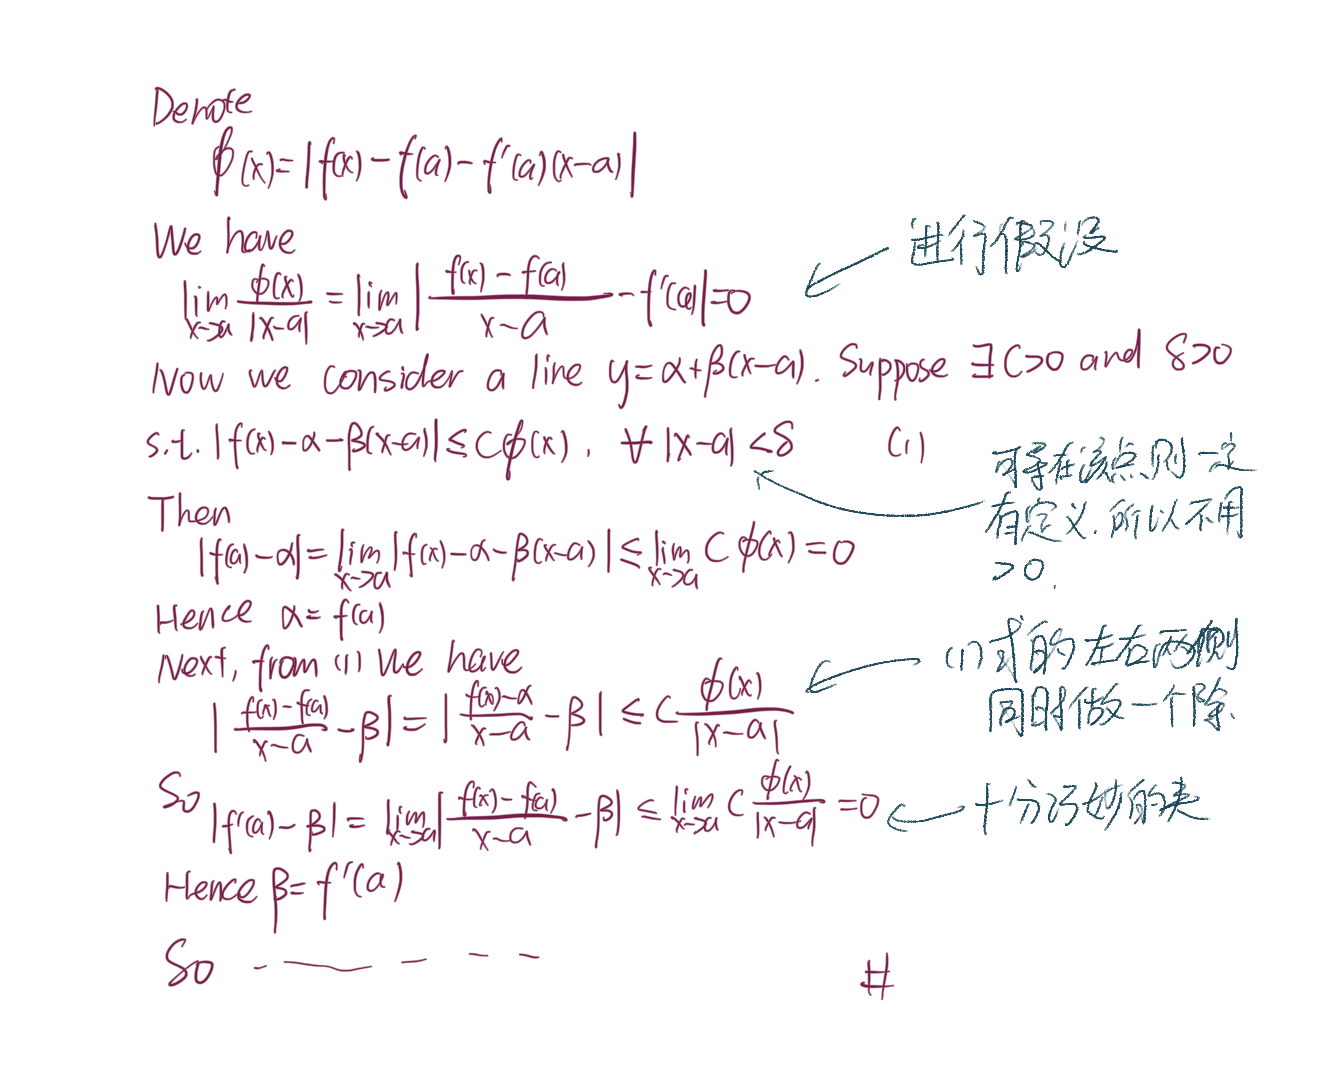 Denote
ϕ(x)=|f(x)-f(a)-f'(a)(x-a)|
We have
进行假设
lim x->a ϕ(x)/|x-a| = lim x->a |(f(x)-f(a))/(x-a) - f'(a)|=0
Now we consider a line y=α+β(x-a). Suppose ∃ C>0 and δ>0
s.t. |f(x)-α-β(x-a)|≤Cϕ(x), ∀ |x-a|<δ (1)
可导在该点则一定
有定义.所以不用
>0.
Then
|f(a)-α|=lim x->a |f(x)-α-β(x-a)|≤lim x->a C ϕ(x)=0
Hence α=f(a)
Next, from (1) We have
(1)式的左右两侧
同时做一个除.
|(f(x)-f(a))/(x-a) -β|=|(f(x)-α)/(x-a) -β| ≤ C ϕ(x)/|x-a|
So |f'(a)-β| = lim x->a |(f(x)-f(a))/(x-a) -β| ≤ lim x->a C ϕ(x)/|x-a| =0
十分巧妙的夹
Hence β=f'(a)
So
#